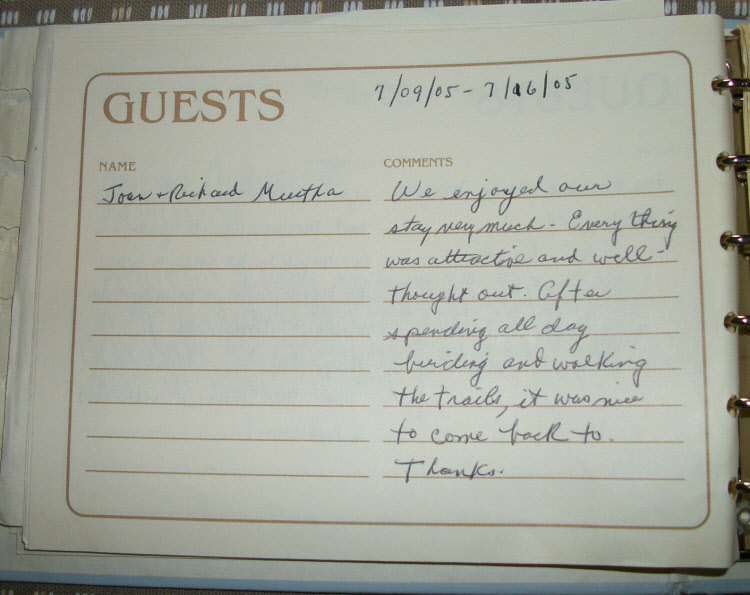 GUESTS
7/09/05 - 7/16/05
NAME
COMMENTS
Joan + Richard Murtha
We enjoyed our
stay very much - Everything
was attractive and well-
thought out. After
spending all day
birding and walking
the trails, it was nice
to come back to.
Thanks.